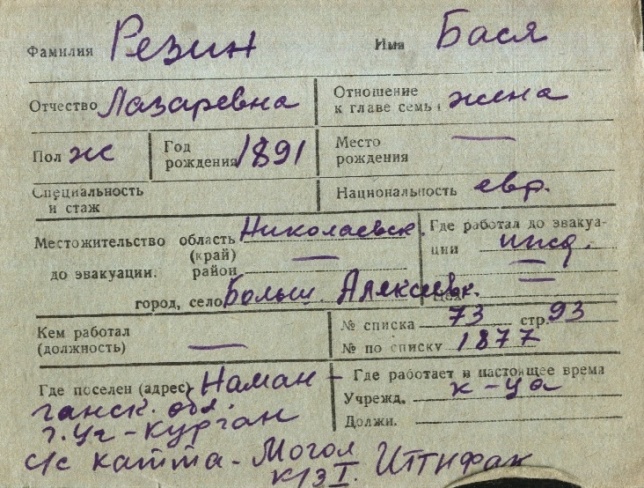 Фамилия Резин Имя Бася
Отчество Лазаревна Отношение к главе семьи жена
Пол ж Год рождения 1891 Место рождения —
Специальность и стаж Национальность евр.
Местожительство до эвакуации: область (край) Николаевск. Где работал до эвакуации ижд.
район —
город, село Больш. Алексеевк.
Кем работал (должность) — № списка 73 стр. 93
№ по списку 1877
Где поселен (адрес) Наман- Где работает в настоящее время
ганск. обл. Учрежд. к-ца
г. Уч-Курган Должн.
с/с Катта-Могол
к/з I. Иттифак